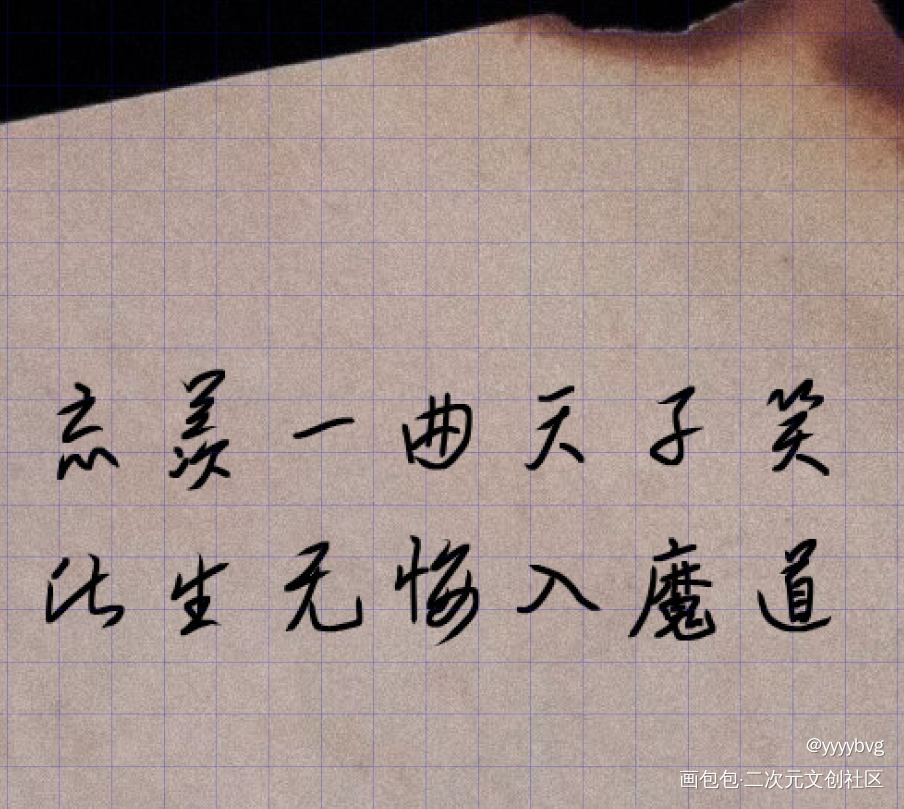 忘羡一曲天子笑
此生无悔入魔道
@yyyybvg
画包包·二次元文创社区